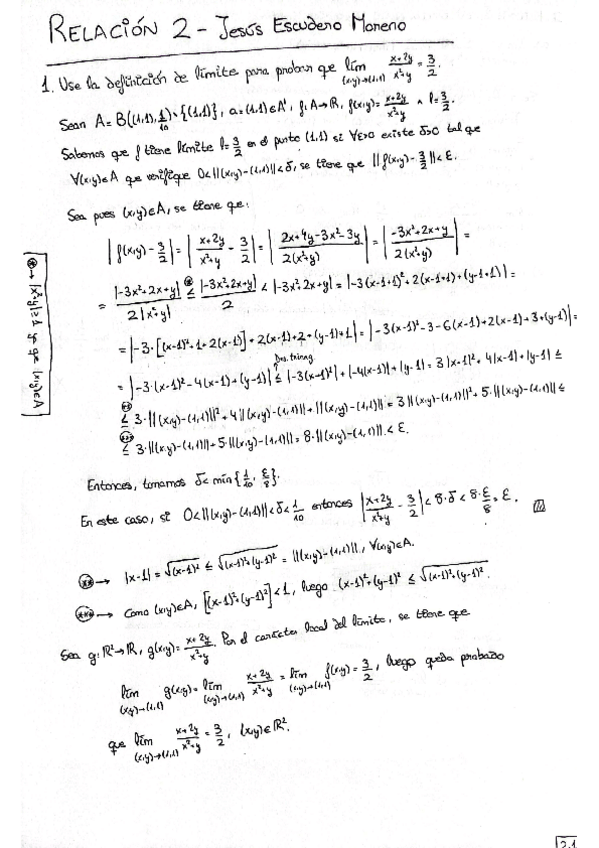 RELACIÓN 2 - Jesús Escudero Moreno
1. Use la definición de límite para probar que lím (x,y)→(1,1) x+2y / x²+y = 3/2.
Sean A = B((1,1), 1/10) \ {(1,1)}, a = (1,1) ∈ A', f: A→ℝ, f(x,y) = x+2y / x²+y ∧ l = 3/2.
Sabemos que f tiene límite l = 3/2 en el punto (1,1) si ∀ε>0 existe δ>0 tal que
∀(x,y)∈A que verifique 0<||(x,y)-(1,1)||<δ, se tiene que ||f(x,y) - 3/2||<ε.
Sea pues (x,y)∈A, se tiene que:
|f(x,y) - 3/2| = |x+2y / x²+y - 3/2| = |2x+4y-3x²-3y / 2(x²+y)| = |-3x²+2x+y / 2(x²+y)| =
= |-3x²+2x+y| / 2|x²+y| ≤ (*) |-3x²+2x+y| / 2 < |-3x²+2x+y| = |-3(x-1+1)²+2(x-1+1)+(y-1+1)| =
= |-3·[(x-1)²+1+2(x-1)]+2(x-1)+2+(y-1)+1| = |-3(x-1)²-3-6(x-1)+2(x-1)+3+(y-1)| =
= |-3·(x-1)²-4(x-1)+(y-1)| ≤ Des. triang |-3(x-1)²|+|-4(x-1)|+|y-1| = 3|x-1|²+4|x-1|+|y-1| ≤
(**) ≤ 3·||(x,y)-(1,1)||²+4||(x,y)-(1,1)||+||(x,y)-(1,1)|| = 3||(x,y)-(1,1)||²+5·||(x,y)-(1,1)|| ≤
(***) ≤ 3·||(x,y)-(1,1)||+5·||(x,y)-(1,1)|| = 8·||(x,y)-(1,1)|| < ε.
(*) → |x²+y| ≥ 1 ya que (x,y)∈A
Entonces, tomamos δ < mín{1/10, ε/8}.
En este caso, si 0<||(x,y)-(1,1)||<δ<1/10 entonces |x+2y / x²+y - 3/2| < 8·δ < 8·ε/8 = ε.
(**) → |x-1| = √(x-1)² ≤ √(x-1)²+(y-1)² = ||(x,y)-(1,1)||, ∀(x,y)∈A.
(***) → Como (x,y)∈A, [(x-1)²+(y-1)²]<1, luego (x-1)²+(y-1)² ≤ √(x-1)²+(y-1)².
Sea g: ℝ²→ℝ, g(x,y) = x+2y / x²+y. Por el carácter local del límite, se tiene que
lím (x,y)→(1,1) g(x,y) = lím (x,y)→(1,1) x+2y / x²+y = lím (x,y)→(1,1) f(x,y) = 3/2, luego queda probado
que lím (x,y)→(1,1) x+2y / x²+y = 3/2, (x,y)∈ℝ².
2.1